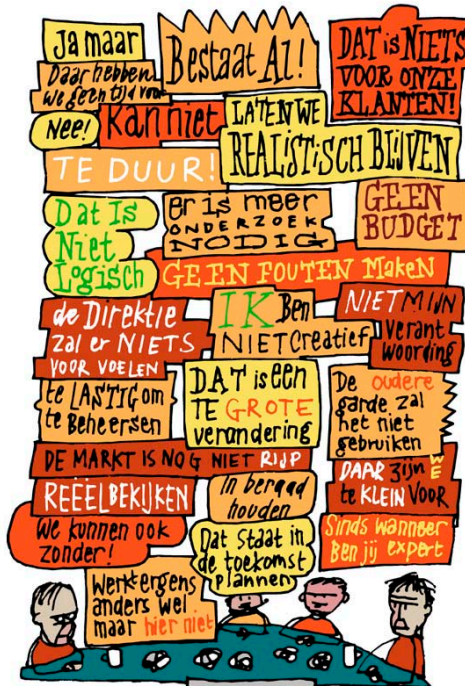 Ja maar
Bestaat Al!
DAT is NIETS
VOOR ONZE
KLANTEN!
Daar hebben
we geen tijd voor
Nee!
Kan niet
LATEN WE
REALISTISCH BLIJVEN
TE DUUR!
Dat Is
Niet
Logisch
er is meer
ONDERZOEK
NODIG
GEEN
BUDGET
GEEN FOUTEN MakeN
de Direktie
zal er NIETS
VOOR VOELEN
IK Ben
NIET Creatief
NIET MIJN
verant
woording
te LASTIG om
te Beheersen
DAT is een
TE GROTE
verandering
De oudere
garde zal
het niet
gebruiken
DE MARKT IS NOG NIET RIJP
DAAR zijn WE
te KLEIN VOOR
REËEL BEKIJKEN
In beraad
houden
We kunnen ook
zonder!
Dat staat in
de toekomst
plannen
Sinds wanneer
Ben jij expert
Werkt ergens
anders wel
maar hier niet